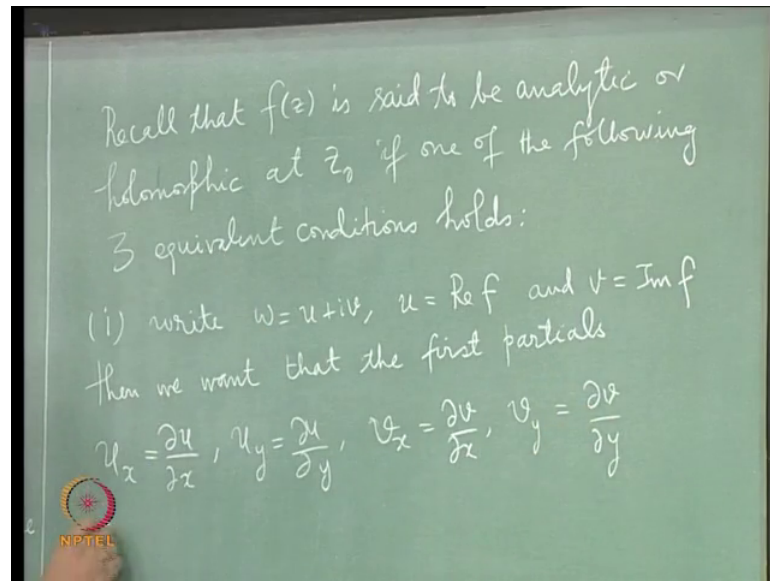 Recall that f(z) is said to be analytic or
holomorphic at z₀ if one of the following
3 equivalent conditions holds:
(i) write w = u+iv, u = Re f and v = Im f
then we want that the first partials
u_x = ∂u/∂x, u_y = ∂u/∂y, v_x = ∂v/∂x, v_y = ∂v/∂y
NPTEL